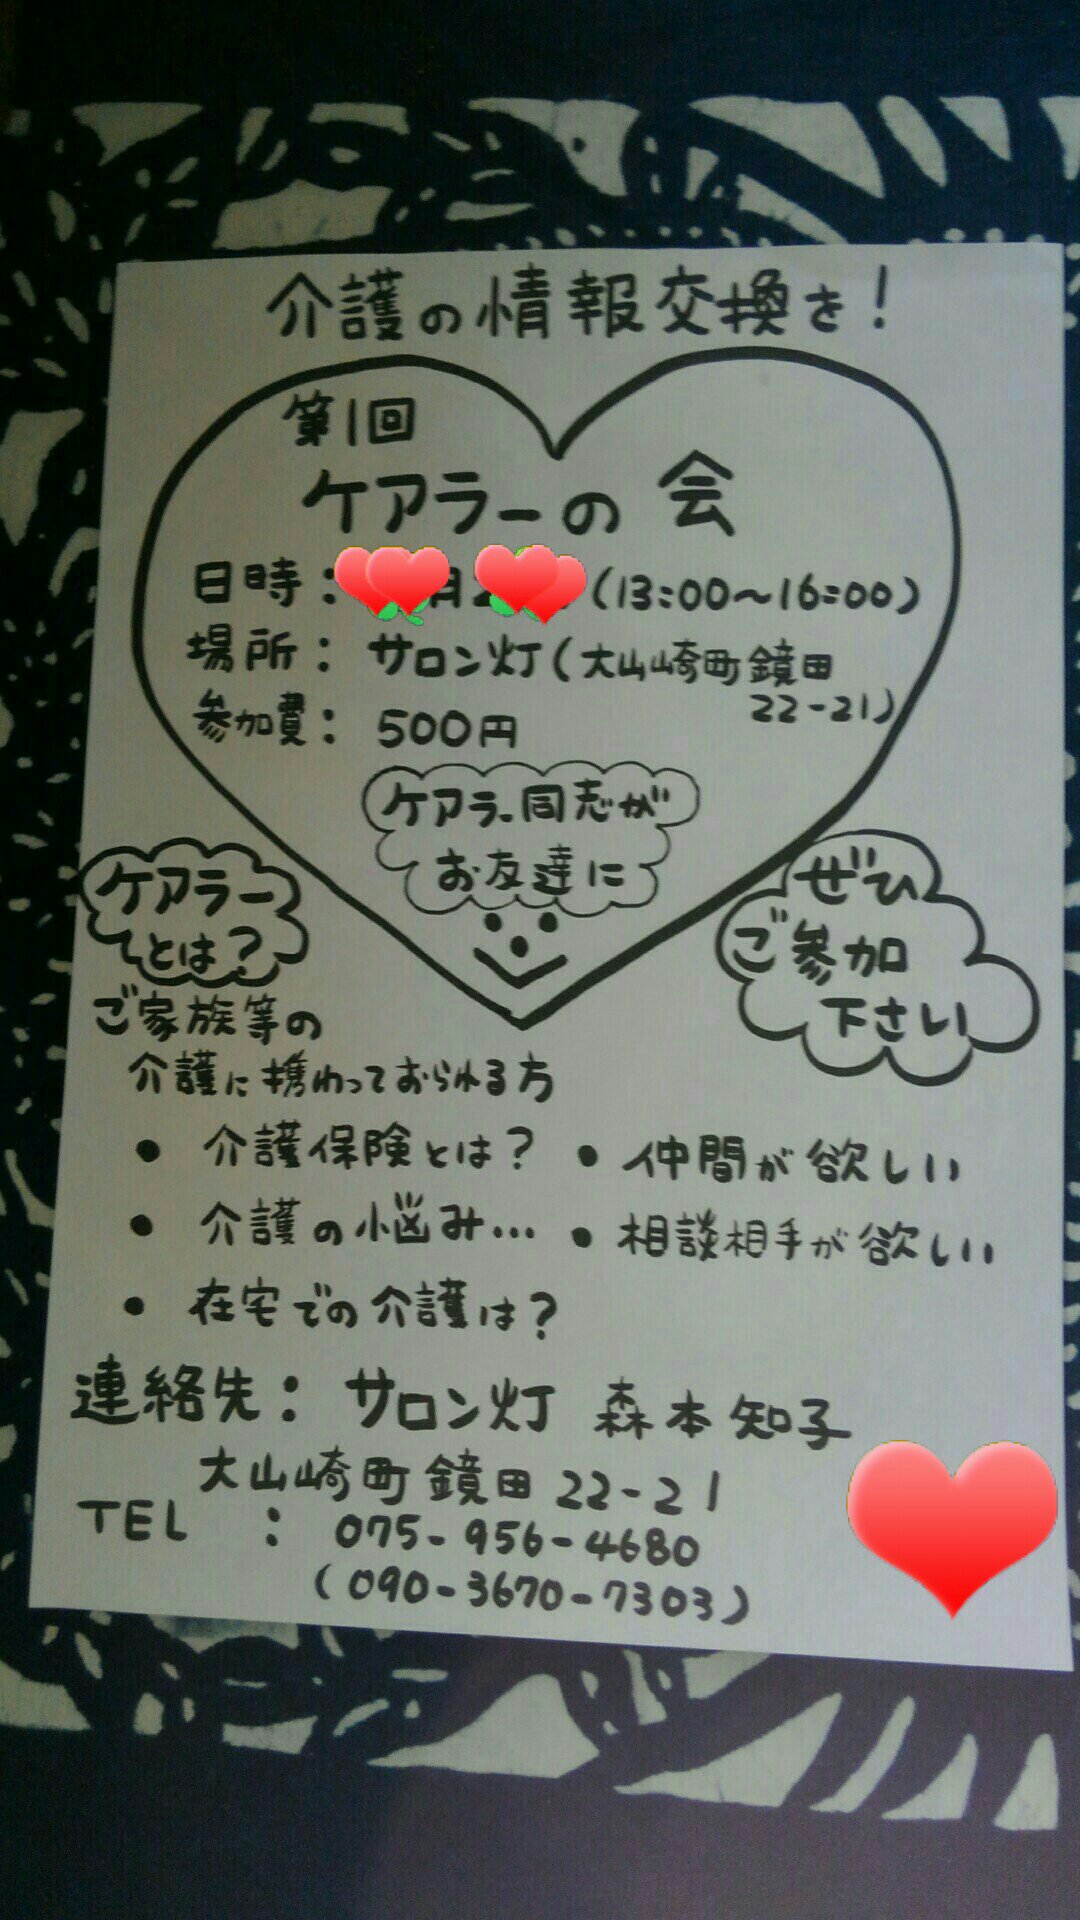 介護の情報交換を!
第1回
ケアラーの会
日時: 月2 (13:00〜16:00)
場所: サロン灯(大山崎町鏡田
22-21)
参加費: 500円
ケアラー同志が
お友達に
ケアラー
とは?
ぜひ
ご参加
下さい
ご家族等の
介護に携わっておられる方
• 介護保険とは?
• 介護の悩み…
• 在宅での介護は?
• 仲間が欲しい
• 相談相手が欲しい
連絡先: サロン灯 森本知子
大山崎町鏡田22-21
TEL : 075-956-4680
(090-3670-7303)